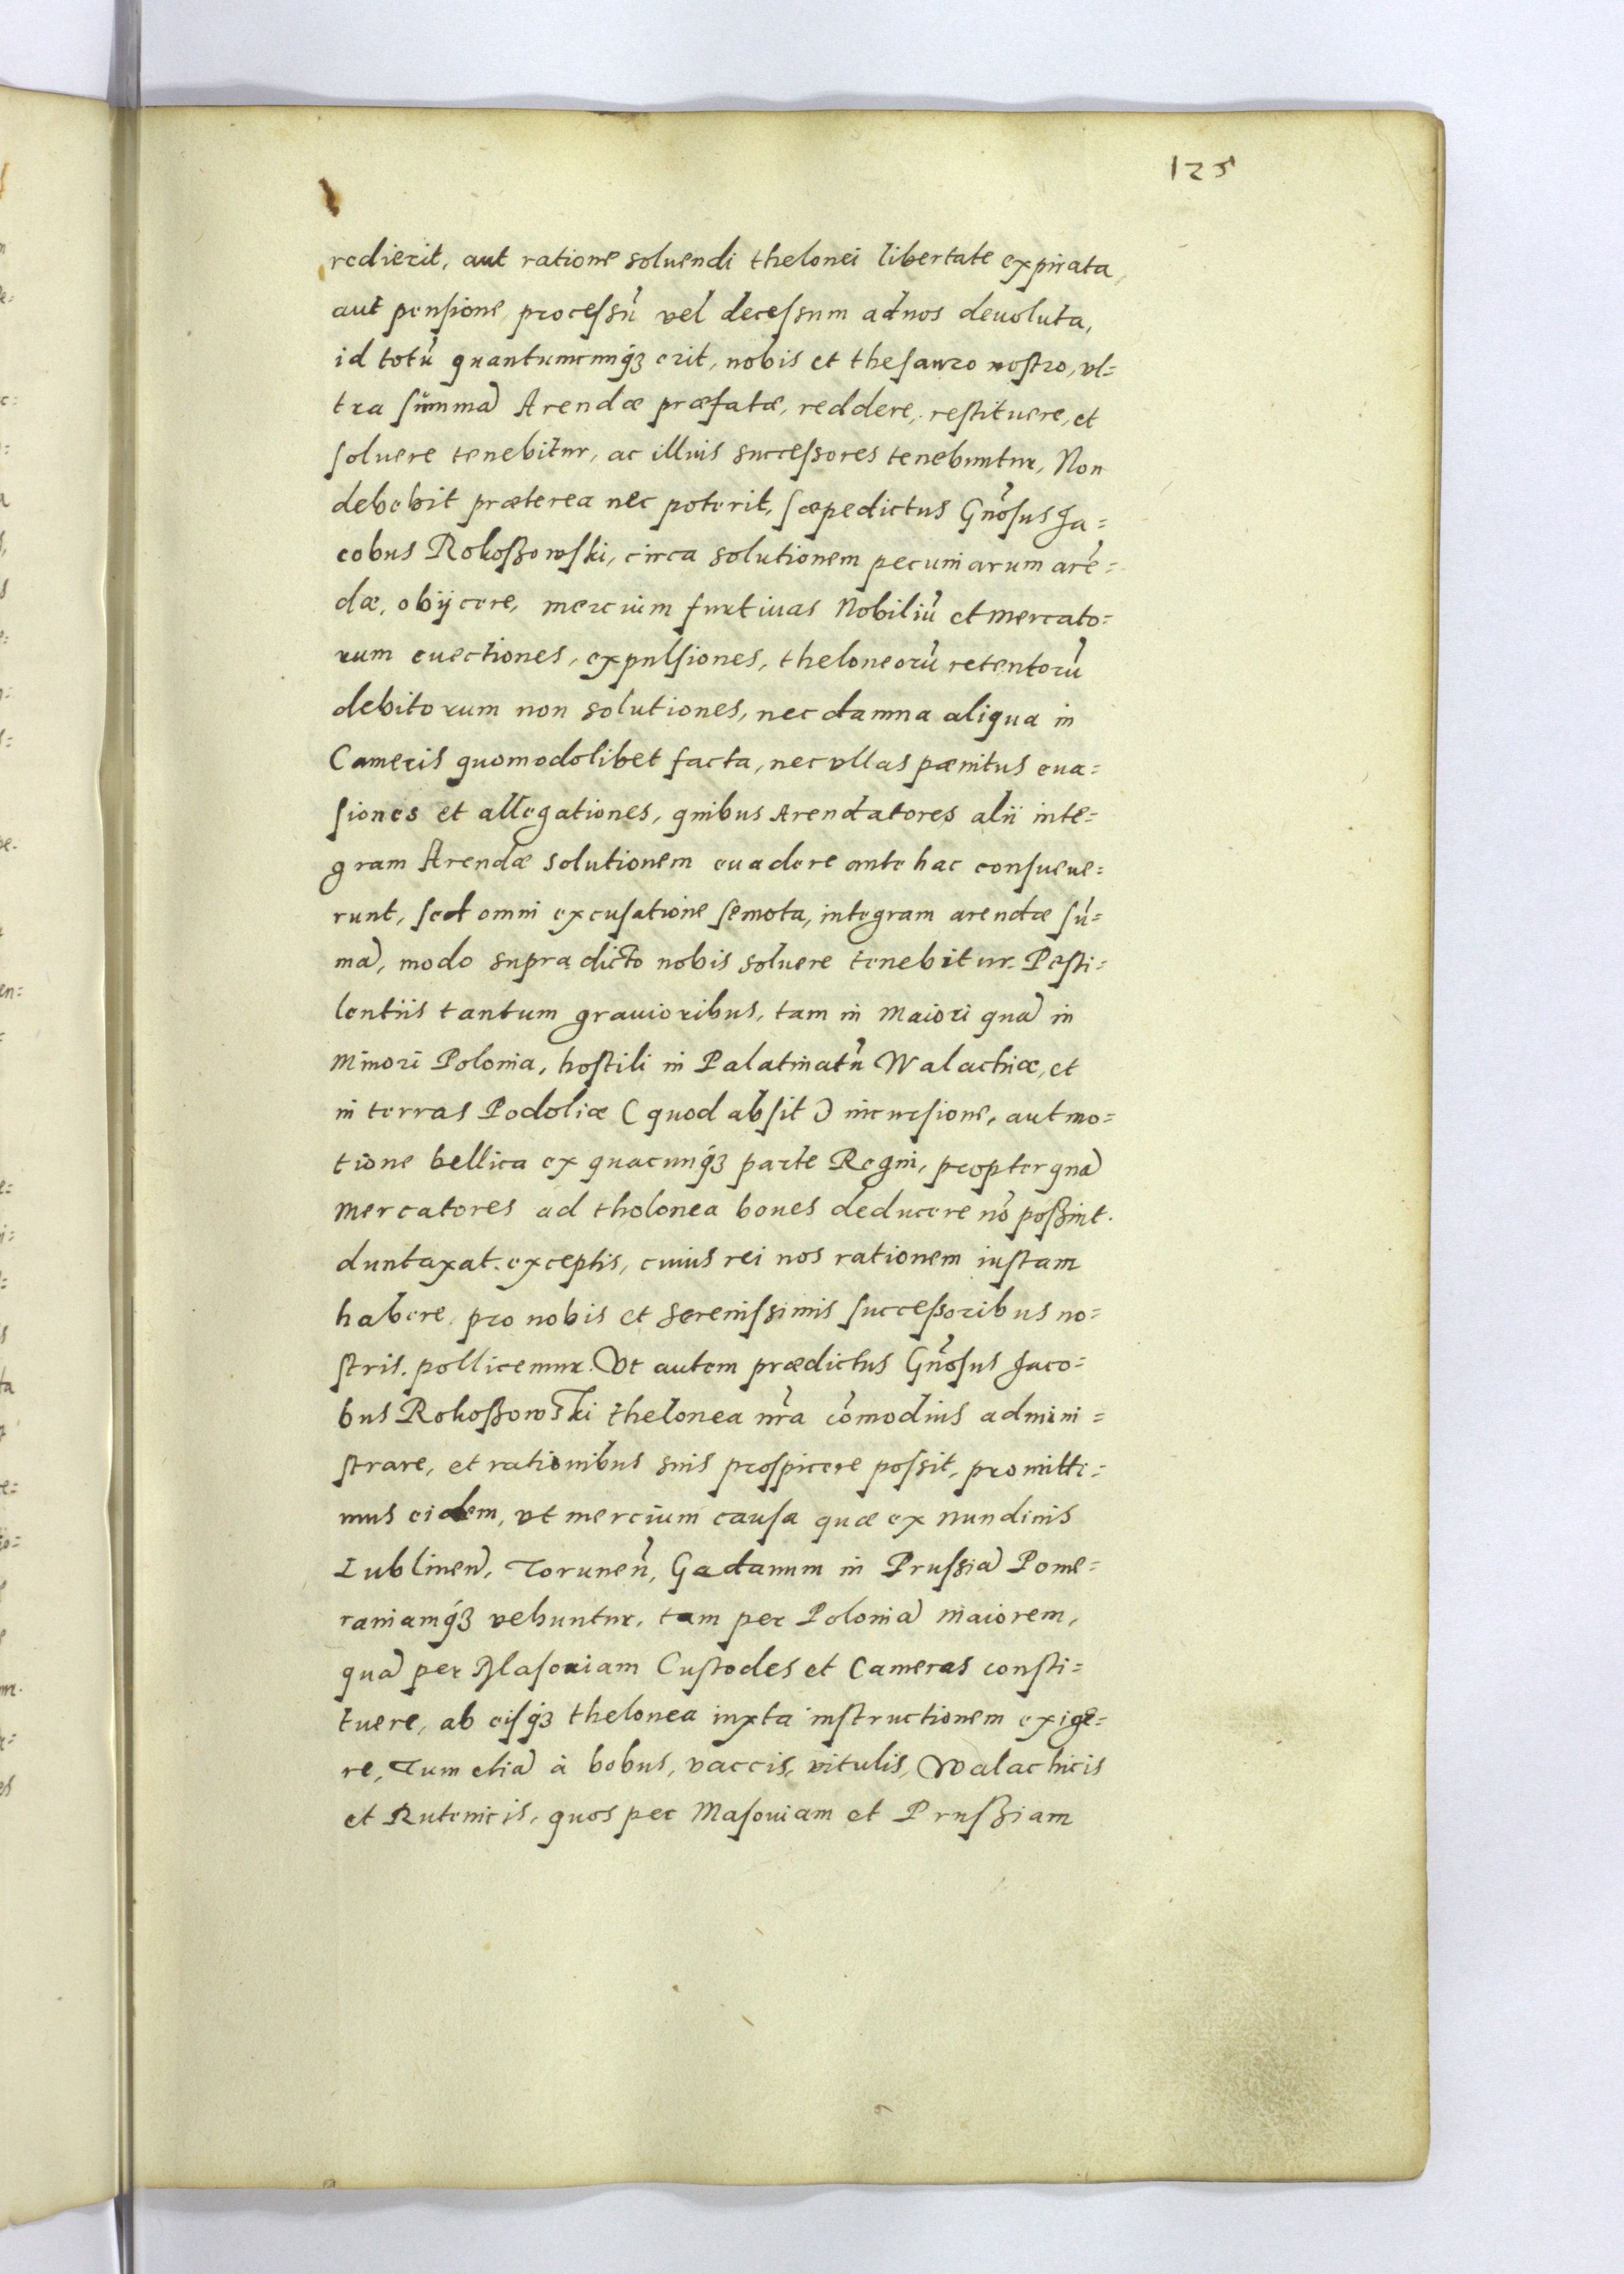 125
redierit, aut ratione soluendi thelonei libertate expirata,
aut pensione, processũ vel decessum ad nos deuoluta,
id totũ quantumcunq́ꝫ erit, nobis et thesauro nostro, vl=
tra summã Arendæ præfatæ, reddere, restituere, et
soluere tenebitur, ac illius successores tenebuntur, Non
debebit præterea nec poterit, sæpedictus Gñosus Ja=
cobus Rokoßowski, circa solutionem pecuniarum arẽ=
dæ, obijcere, mercium furtiuas Nobiliũ et mercato=
rum euectiones, expulsiones, theloneorũ retentorũ
debitorum non solutiones, nec damna aliqua in
Cameris quomodolibet facta, nec vllas pænitus eua=
siones et allegationes, quibus Arendatores alii inte=
gram Arendæ solutionem euadere ante hac consueue=
runt, sed omni excusatione semota, integram arendæ sũ=
mã, modo supra dicto nobis soluere tenebitur. Pesti=
lentiis tantum grauioribus, tam in Maiori quã in
Minori Polonia, hostili in Palatinatũ Walachiæ, et
in terras Podoliæ (quod absit) incursione, aut mo=
tione bellica ex quacunq́ꝫ parte Regni, propter quã
mercatores ad thelonea boues deducere nõ poßint.
duntaxat. exceptis, cuius rei nos rationem iustam
habere, pro nobis et serenissimis successoribus no=
stris. pollicemur. Vt autem prædictus Gñosus Jaco=
bus Rokoßowski thelonea nr̃a cõmodius admini=
strare, et rationibus suis prospicere possit, promitti=
mus eidem, vt mercium causa quæ ex nundinis
Lublineñ, Toruneñ, Gedanum in Prussiã Pome=
raniamq́ꝫ vehuntur, tam per Poloniã maiorem,
quã per Masouiam Custodes et Cameras consti=
tuere, ab eisq́ꝫ thelonea iuxta instructionem exige=
re, Tum etiã à bobus, vaccis, vitulis, Walachicis
et Rutenicis, quos per Masouiam et Prußiam